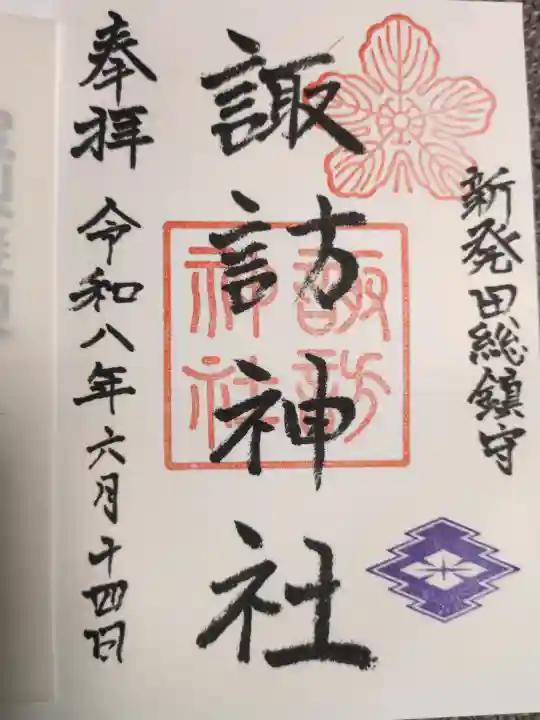 新発田総鎮守
諏訪神社
諏訪
神社
奉拝
令和八年六月十四日